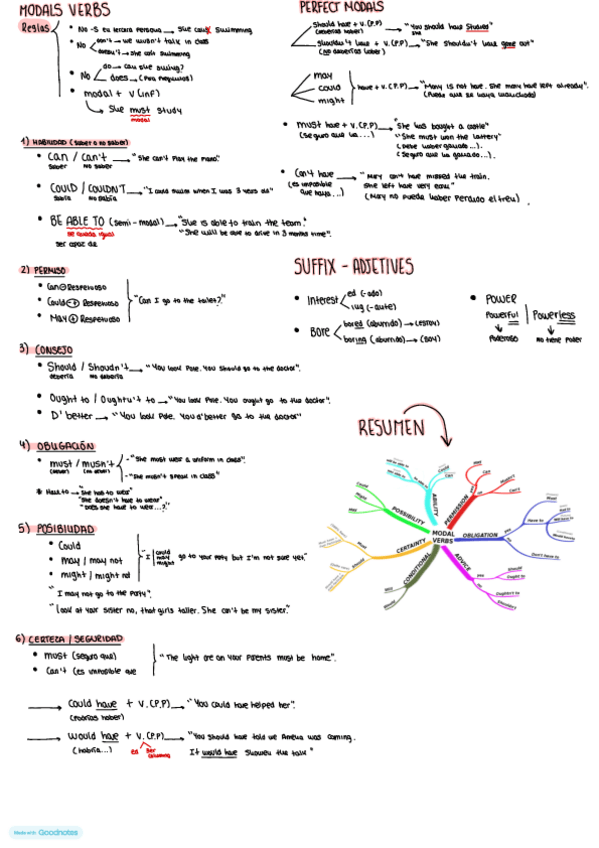 MODALS VERBS
Reglas
No -S en tercera persona → She cans swimming
No
don't → we musn't talk in class
doesn't → she can't swimming
No
do → can she swing?
does → (Para preguntas)
modal + V (inf)
She must study
modal
1) HABILIDAD (saber o no saber)
CAN / CAN'T → "She can't play the piano."
saber no saber
COULD / COULDN'T → "I could swim when I was 3 years old"
sabía no sabía
BE ABLE TO (semi-modal) → "She is able to train the team."
se queda igual
"She will be able to drive in 3 months time".
ser capaz de
2) PERMISO
Can ⊖ Respetuoso
Could Respetuoso
May ⊕ Respetuoso
"Can I go to the toilet?"
3) CONSEJO
Should / Shoudn't → "You look pale. You should go to the doctor".
debería no debería
Ought to / Oughtn't to → "You look pale. You ought go to the doctor".
D' better → "You look pale. You d'better go to the doctor"
4) OBLIGACIÓN
must / musn't
- "She must wear a uniform in class".
- "She musn't speak in class"
* Have to → "She has to wear"
"She doesn't have to wear"
"Does she have to wear...?"
5) POSIBILIDAD
Could
may / may not
might / might not
"I could may might go to your party but I'm not sure yet."
"I may not go to the party".
"look at your sister no, that girls taller. She can't be my sister."
6) CERTEZA / SEGURIDAD
must (seguro que)
Can't (es imposible que
"The light are on your parents must be home".
Could have + V. (P.P) → "You could have helped her".
(Podrías haber)
would have + V. (P.P) → "You should have told me Amelia was coming.
(habría...)
ed
3er columna
It would have showed the talk"
PERFECT MODALS
Should have + V. (P.P) → "You should have studied"
(deberías haber)
She
shouldn't have + V. (P.P) → "She shouldn't have gone out"
(no deberías haber)
may
could
might
have + V. (P.P) → "Mary is not here. She may have left already".
must have + V. (P.P) → "She has bought a castle"
(seguro que ha...)
"She must won the lottery"
(Debe haber ganado...).
(Seguro que ha ganado...).
Can't have → "Mary can't have missed the train.
(es imposible que haya...)
She left have very early"
(Mary no puede haber perdido el tren)
SUFFIX - ADJETIVES
Interest
ed (-ado)
ing (-ante)
Bore
bored (aburrido) → (ESTOY)
boring (aburrido) → (SOY)
POWER
Powerful
Powerless
Poderoso
no tiene poder
RESUMEN
MODAL VERBS
ABILITY
PERMISSION
OBLIGATION
ADVICE
CONDITIONAL
CERTAINTY
POSSIBILITY
Could
Can
Might
May
Must
Have to
Don't have to
Should
Ought to
Shouldn't
Would
Made with Goodnotes